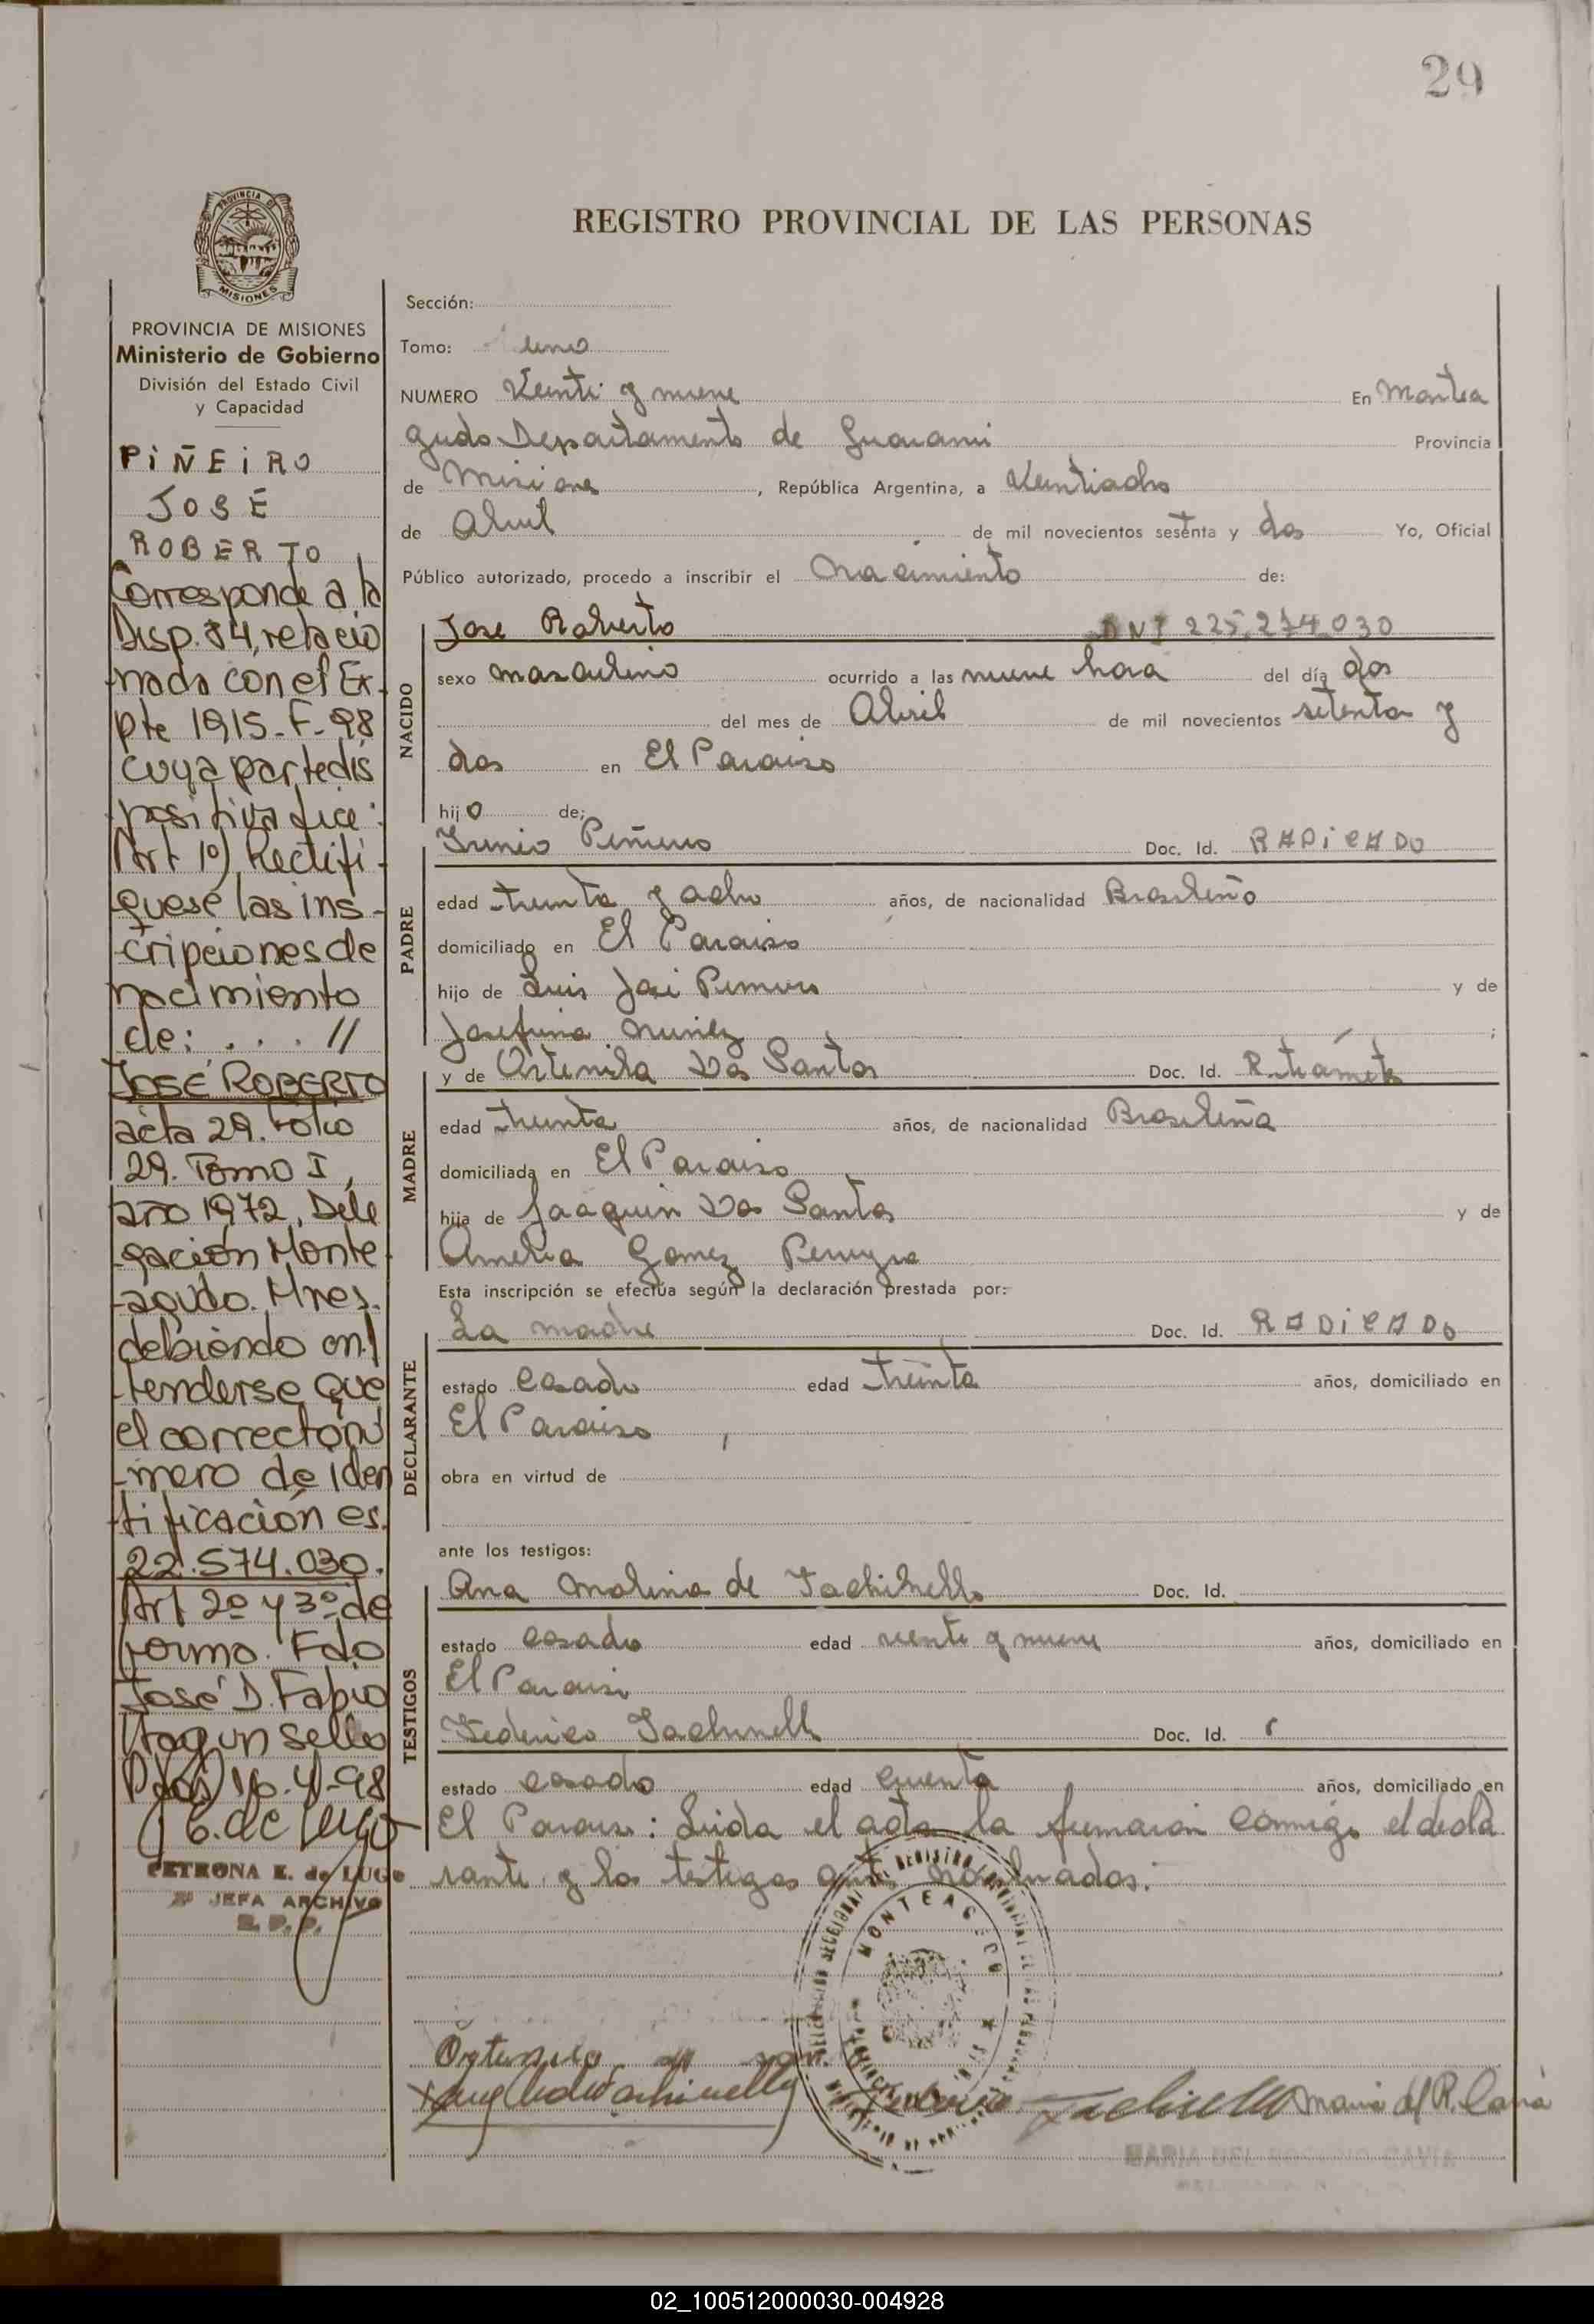 29
REGISTRO PROVINCIAL DE LAS PERSONAS
PROVINCIA DE
MISIONES
PROVINCIA DE MISIONES
Ministerio de Gobierno
División del Estado Civil
y Capacidad
PIÑEIRO
JOSÉ
ROBERTO
Corresponde a la
Disp. 84, relacio
nada con el Ex-
pte 1915-F-98
cuya parte dis
positiva dice:
Art 1º) Rectifi-
quese las ins-
cripciones de
nacimiento
de: . . . //
JOSÉ ROBERTO
acta 29. Folio
29. Tomo I,
año 1972, Dele
gación Monte-
agudo. Mnes.
debiendo en
tenderse que
el correcto nú
mero de iden
tificación es.
22.574.030.
Art 2º y 3º de
forma. Fdo
José D. Fabio
Hay un sello
16-4-98
E. de Lugo
PETRONA E. de LUGO
JEFA ARCHIVO
R.P.P.
Sección:
Tomo: uno
NUMERO Veinti y nueve En Montea
gudo Departamento de Guarani Provincia
de Misiones, República Argentina, a Veintiocho
de Abril de mil novecientos setenta y dos Yo, Oficial
Público autorizado, procedo a inscribir el Nacimiento de:
NACIDO
Jose Roberto DNI 225.274.030
sexo masculino ocurrido a las nueve hora del día dos
del mes de Abril de mil novecientos setenta y
dos en El Paraiso
hijo de:
PADRE
Piñeiro Doc. Id. RADICADO
edad treinta y ocho años, de nacionalidad Brasileño
domiciliado en El Paraiso
hijo de Luis José y de
Josefina Nunez ;
MADRE
y de Ortenila Dos Santos Doc. Id. R. trámite
edad treinta años, de nacionalidad Brasileña
domiciliada en El Paraiso
hija de Joaquin Dos Santos y de
Amelia Gomez Pereyra
Esta inscripción se efectúa según la declaración prestada por:-
DECLARANTE
La madre Doc. Id. RADICADO
estado casada edad treinta años, domiciliado en
El Paraiso
obra en virtud de
ante los testigos:
TESTIGOS
Ana Molina de Tachinello Doc. Id.
estado casada edad veinte y nueve años, domiciliado en
El Paraiso
Federico Tachinell Doc. Id.
estado casado edad años, domiciliado en
El Paraiso: Leida el acta la firmaron conmigo el decla
rante y los testigos nombrados.
MONTEAGUDO
Maria del R. Cavia
MARIA DEL ROSARIO CAVIA
02_100512000030-004928